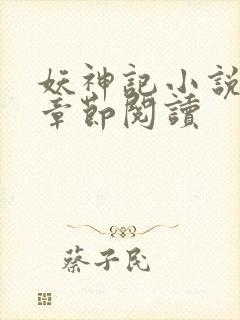 妖神記小說
章節閱讀
蔡子民